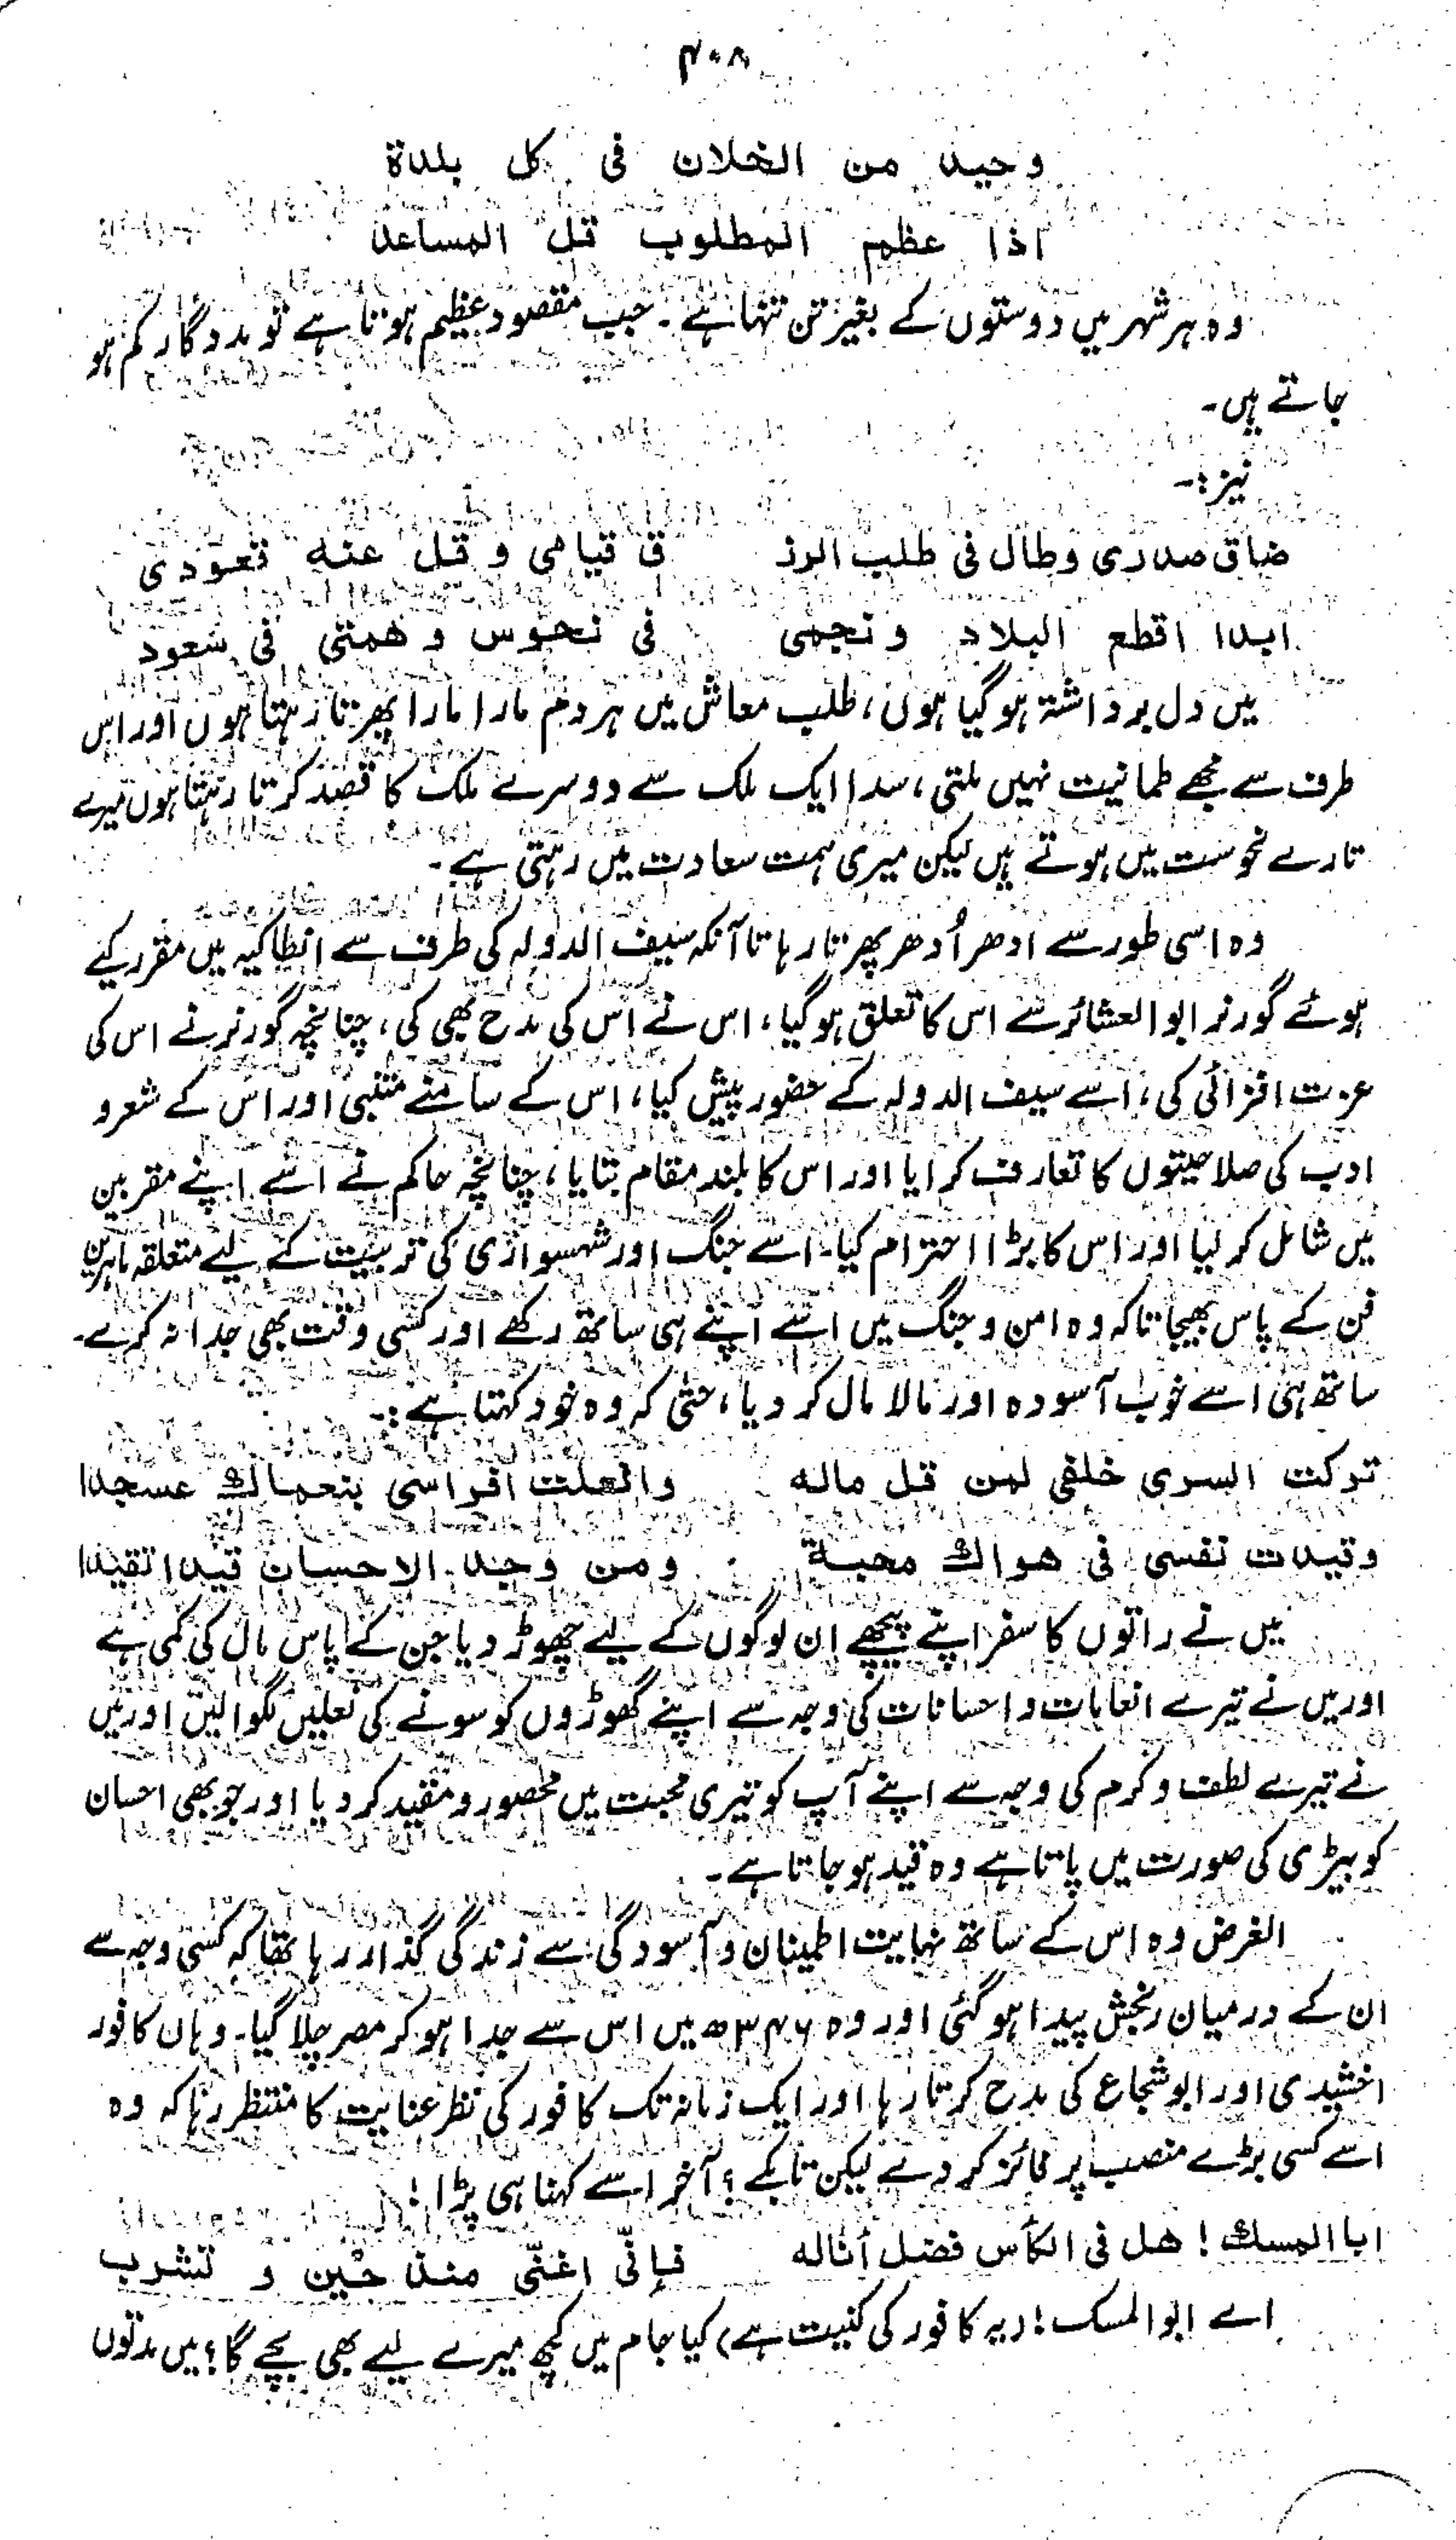 ۴۰۸
وحید من الخلان فی کل بلدة
اذا عظم المطلوب قل المساعد
وہ ہر شہر میں دوستوں کے بغیر تن تنہا ہے ۔ جب مقصود عظیم ہوتا ہے تو مددگار کم ہو
جاتے ہیں۔
نیز :۔
ضاق صدری وطال فی طلب الرز ق قیامی و قل عنه قعودی
ابدا اقطع البلاد و نجمی فی نحوس و همتی فی سعود
میں دل برداشتہ ہو گیا ہوں، طلب معاش میں ہر دم مارا مارا پھرتا رہتا ہوں اور اس
طرف سے مجھے طمانیت نہیں ملتی، سدا ایک ملک سے دوسرے ملک کا قصد کرتا رہتا ہوں میرے
تارے نحوست میں ہوتے ہیں لیکن میری ہمت سعادت میں رہتی ہے۔
وہ اسی طور سے ادھر اُدھر پھرتا رہا تا آنکہ سیف الدولہ کی طرف سے انطاکیہ میں مقرر کیے
ہوئے گورنر ابو العشائر سے اس کا تعلق ہو گیا، اس نے اس کی مدح بھی کی، چنانچہ گورنر نے اس کی
عزت افزائی کی، اسے سیف الدولہ کے حضور پیش کیا، اس کے سامنے متنبی اور اس کے شعر و
ادب کی صلاحیتوں کا تعارف کرایا اور اس کا بلند مقام بتایا، چنانچہ حاکم نے اسے اپنے مقربین
میں شامل کر لیا اور اس کا بڑا احترام کیا۔ اسے جنگ اور شہسواری کی تربیت کے لیے متعلقہ ماہرین
فن کے پاس بھیجا تاکہ وہ امن و جنگ میں اسے اپنے ہی ساتھ رکھے اور کسی وقت بھی جدا نہ کرے۔
ساتھ ہی اسے خوب آسودہ اور مالا مال کر دیا، حتیٰ کہ وہ خود کہتا ہے :۔
ترکت السری خلفی لمن قل ماله وانعلت افراسی بنعماك عسجدا
وقیدت نفسی فی هواك محبة ومن وجد الاحسان قیدا تقیدا
میں نے راتوں کا سفر اپنے پیچھے ان لوگوں کے لیے چھوڑ دیا جن کے پاس مال کی کمی ہے
اور میں نے تیرے انعامات و احسانات کی وجہ سے اپنے گھوڑوں کو سونے کی نعلیں لگوا لیں اور میں
نے تیرے لطف و کرم کی وجہ سے اپنے آپ کو تیری محبت میں محصور و مقید کر دیا اور جو بھی احسان
کو بیڑی کی صورت میں پاتا ہے وہ قید ہو جاتا ہے۔
الغرض وہ اس کے ساتھ نہایت اطمینان و آسودگی سے زندگی گذار رہا تھا کہ کسی وجہ سے
ان کے درمیان رنجش پیدا ہو گئی اور وہ ۳۴۶ھ میں اس سے جدا ہو کر مصر چلا گیا۔ وہاں کافور
اخشیدی اور ابو شجاع کی مدح کرتا رہا اور ایک زمانہ تک کافور کی نظر عنایت کا منتظر رہا کہ وہ
اسے کسی بڑے منصب پر فائز کر دے لیکن تابکے ؟ آخر اسے کہنا ہی پڑا !
ابا المسك ! هل فی الکأس فضل أناله فإنّی اغنّی منذ حین و تشرب
اے ابو المسک ! (یہ کافور کی کنیت ہے) کیا جام میں کچھ میرے لیے بھی بچے گا ؟ میں مدتوں